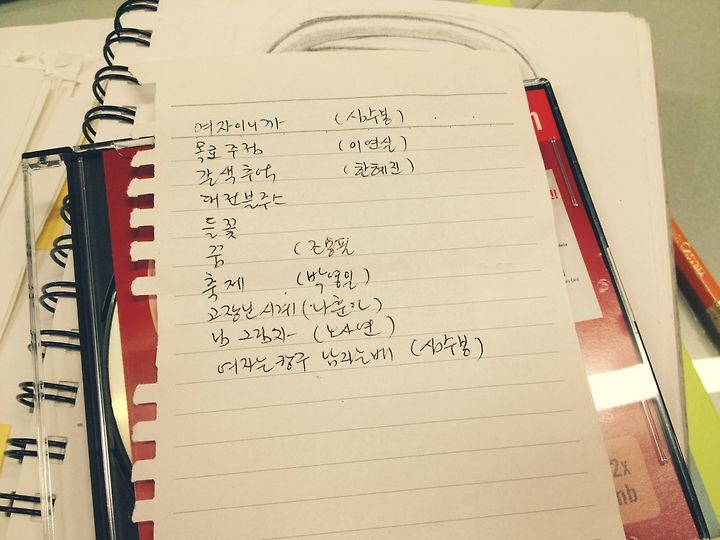 여자이니까 (심수봉)
목로주점 (이연실)
갈색추억 (한혜진)
대전블루스
들꽃
꿈 (조용필
축제 (박영일)
고장난시계 (나훈아)
님 그림자 (노사연)
여자는항구 남자는배 (심수봉)
2x
mb